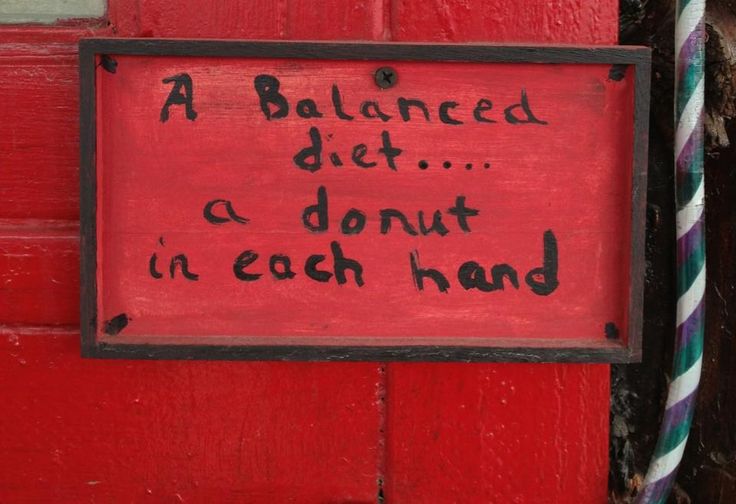 A Balanced
diet....
a donut
in each hand